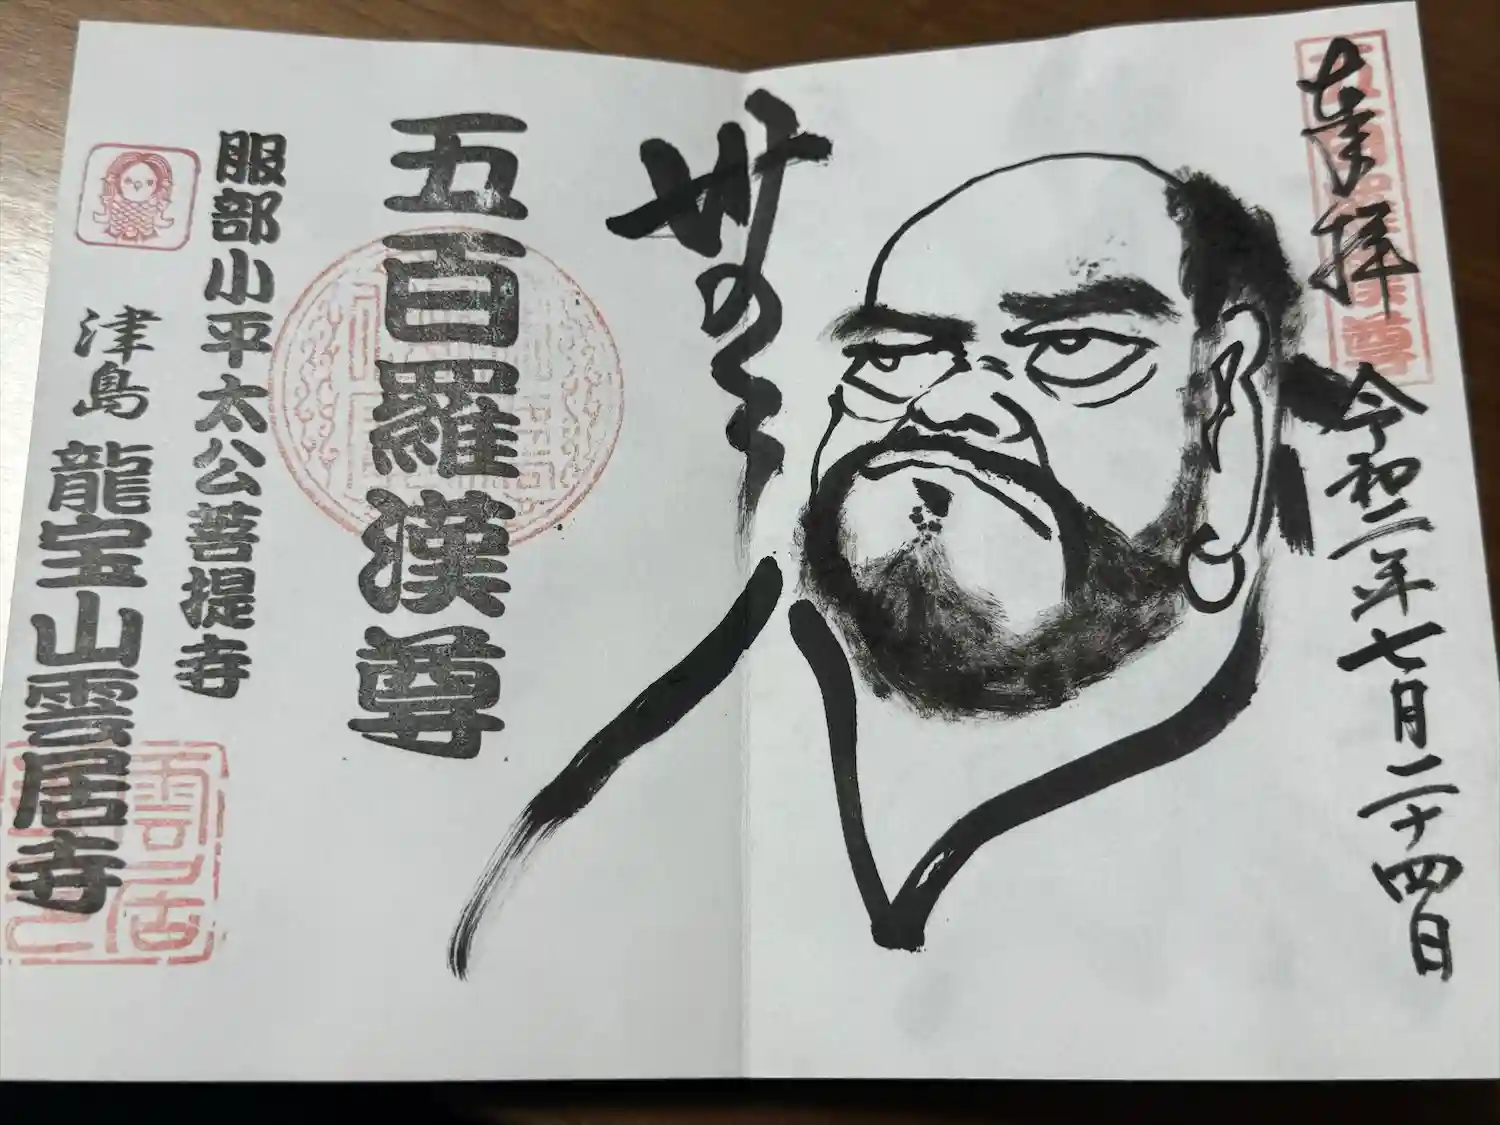 奉拝
令和二年七月二十四日
五百羅漢尊
服部小平太公菩提寺
津島 龍宝山雲居寺